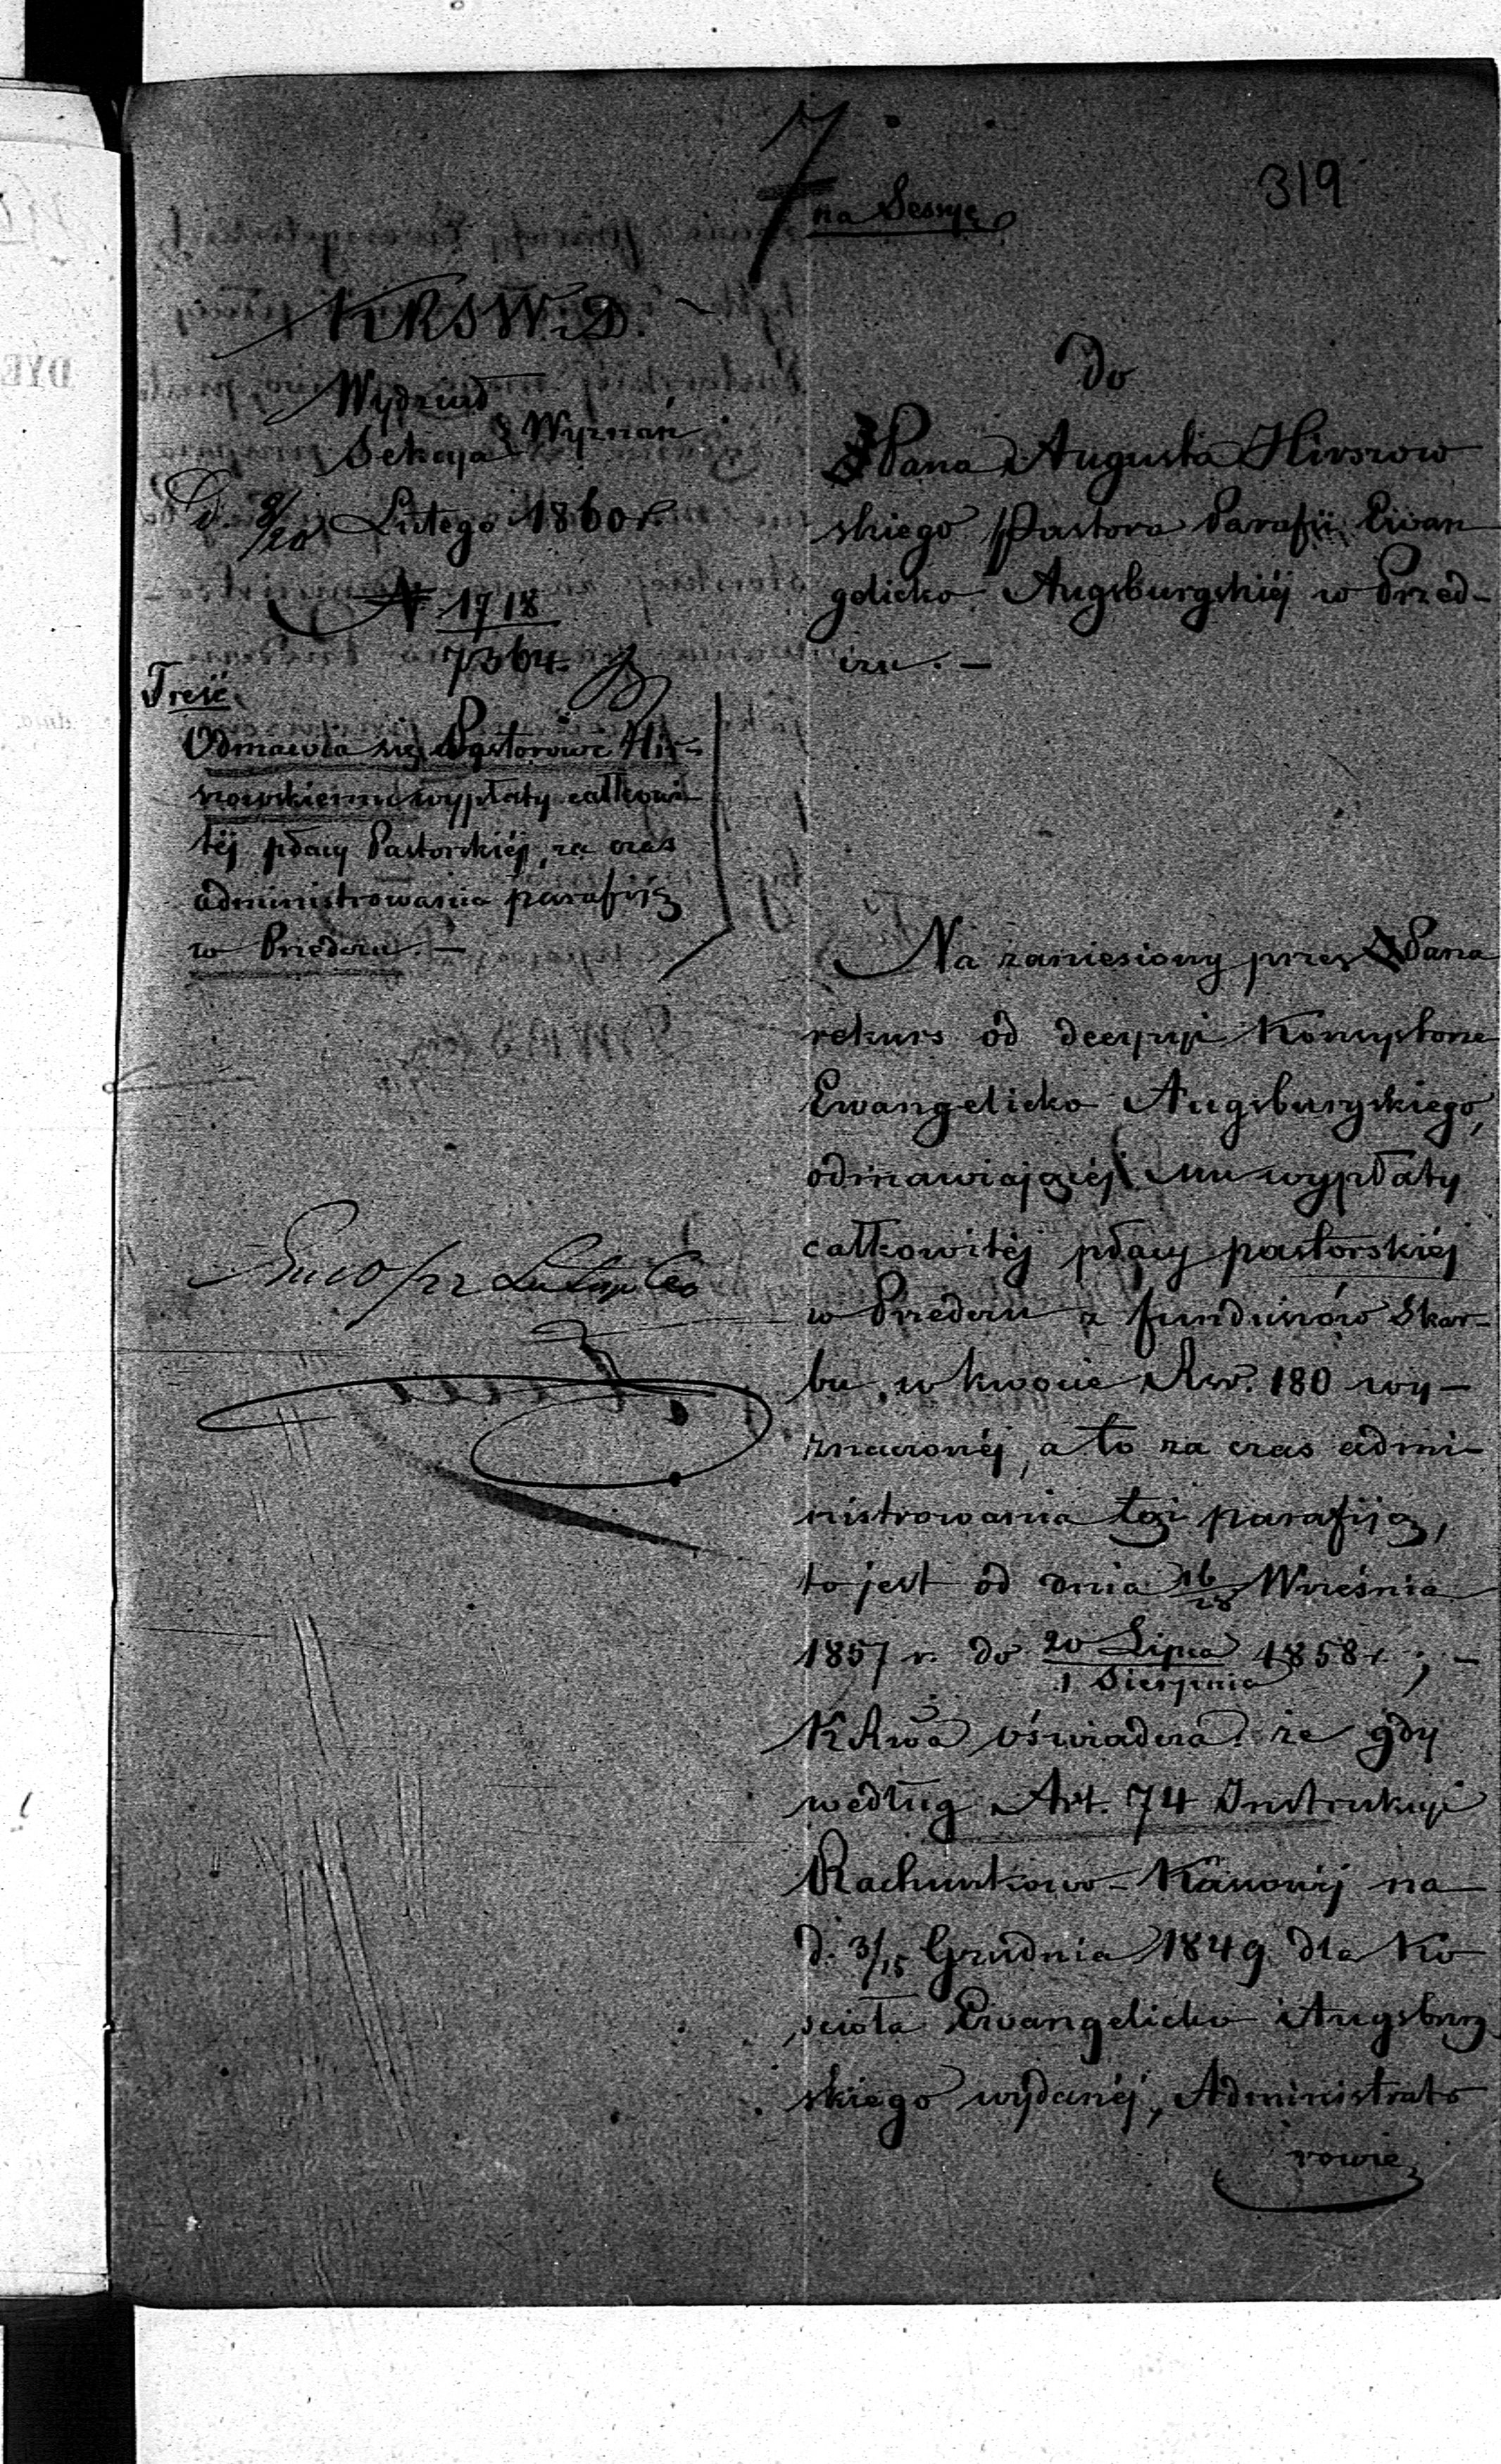 7 na Sessyę
319
KRSW.D.
Wydział
Sekcya } Wyznań
D. 8/20 Lutego 1860 r
N 1718
7364
Treść.
Odmawia się Pastorowi Hir-
szowskiemu wypłaty całkowi
téj płacy Pastorskiéj, za czas
administrowania parafiją
w Przedczu. —
do
Pana Augusta Hirszow
skiego Pastora Parafii Ewan
gelicko Augsburgskiéj w Przed-
czu. —
Na zaniesiony przez Pana
rekurs od decyzyi Konsystorza
Ewangelicko Augsburgskiego,
odmawiającéj mu wypłaty
całkowitéj płacy pastorskiéj
w Przedczu z funduszów Skar-
bu, w kwocie Rsr. 180 wy-
znaczonéj, a to za czas admi-
nistrowania tąż parafiją,
to jest od dnia 16/28 Września
1857 r. do 20 Lipca/1 Sierpnia 1858 r; —
KRwa oświadcza że gdy
według Art. 74 Instrukcyi
Rachunkowo-Kassowéj na
d. 3/15 Grudnia 1849 dla Ko
ścioła Ewangelicko Augsburg
skiego wydanéj, Administrato
rowie